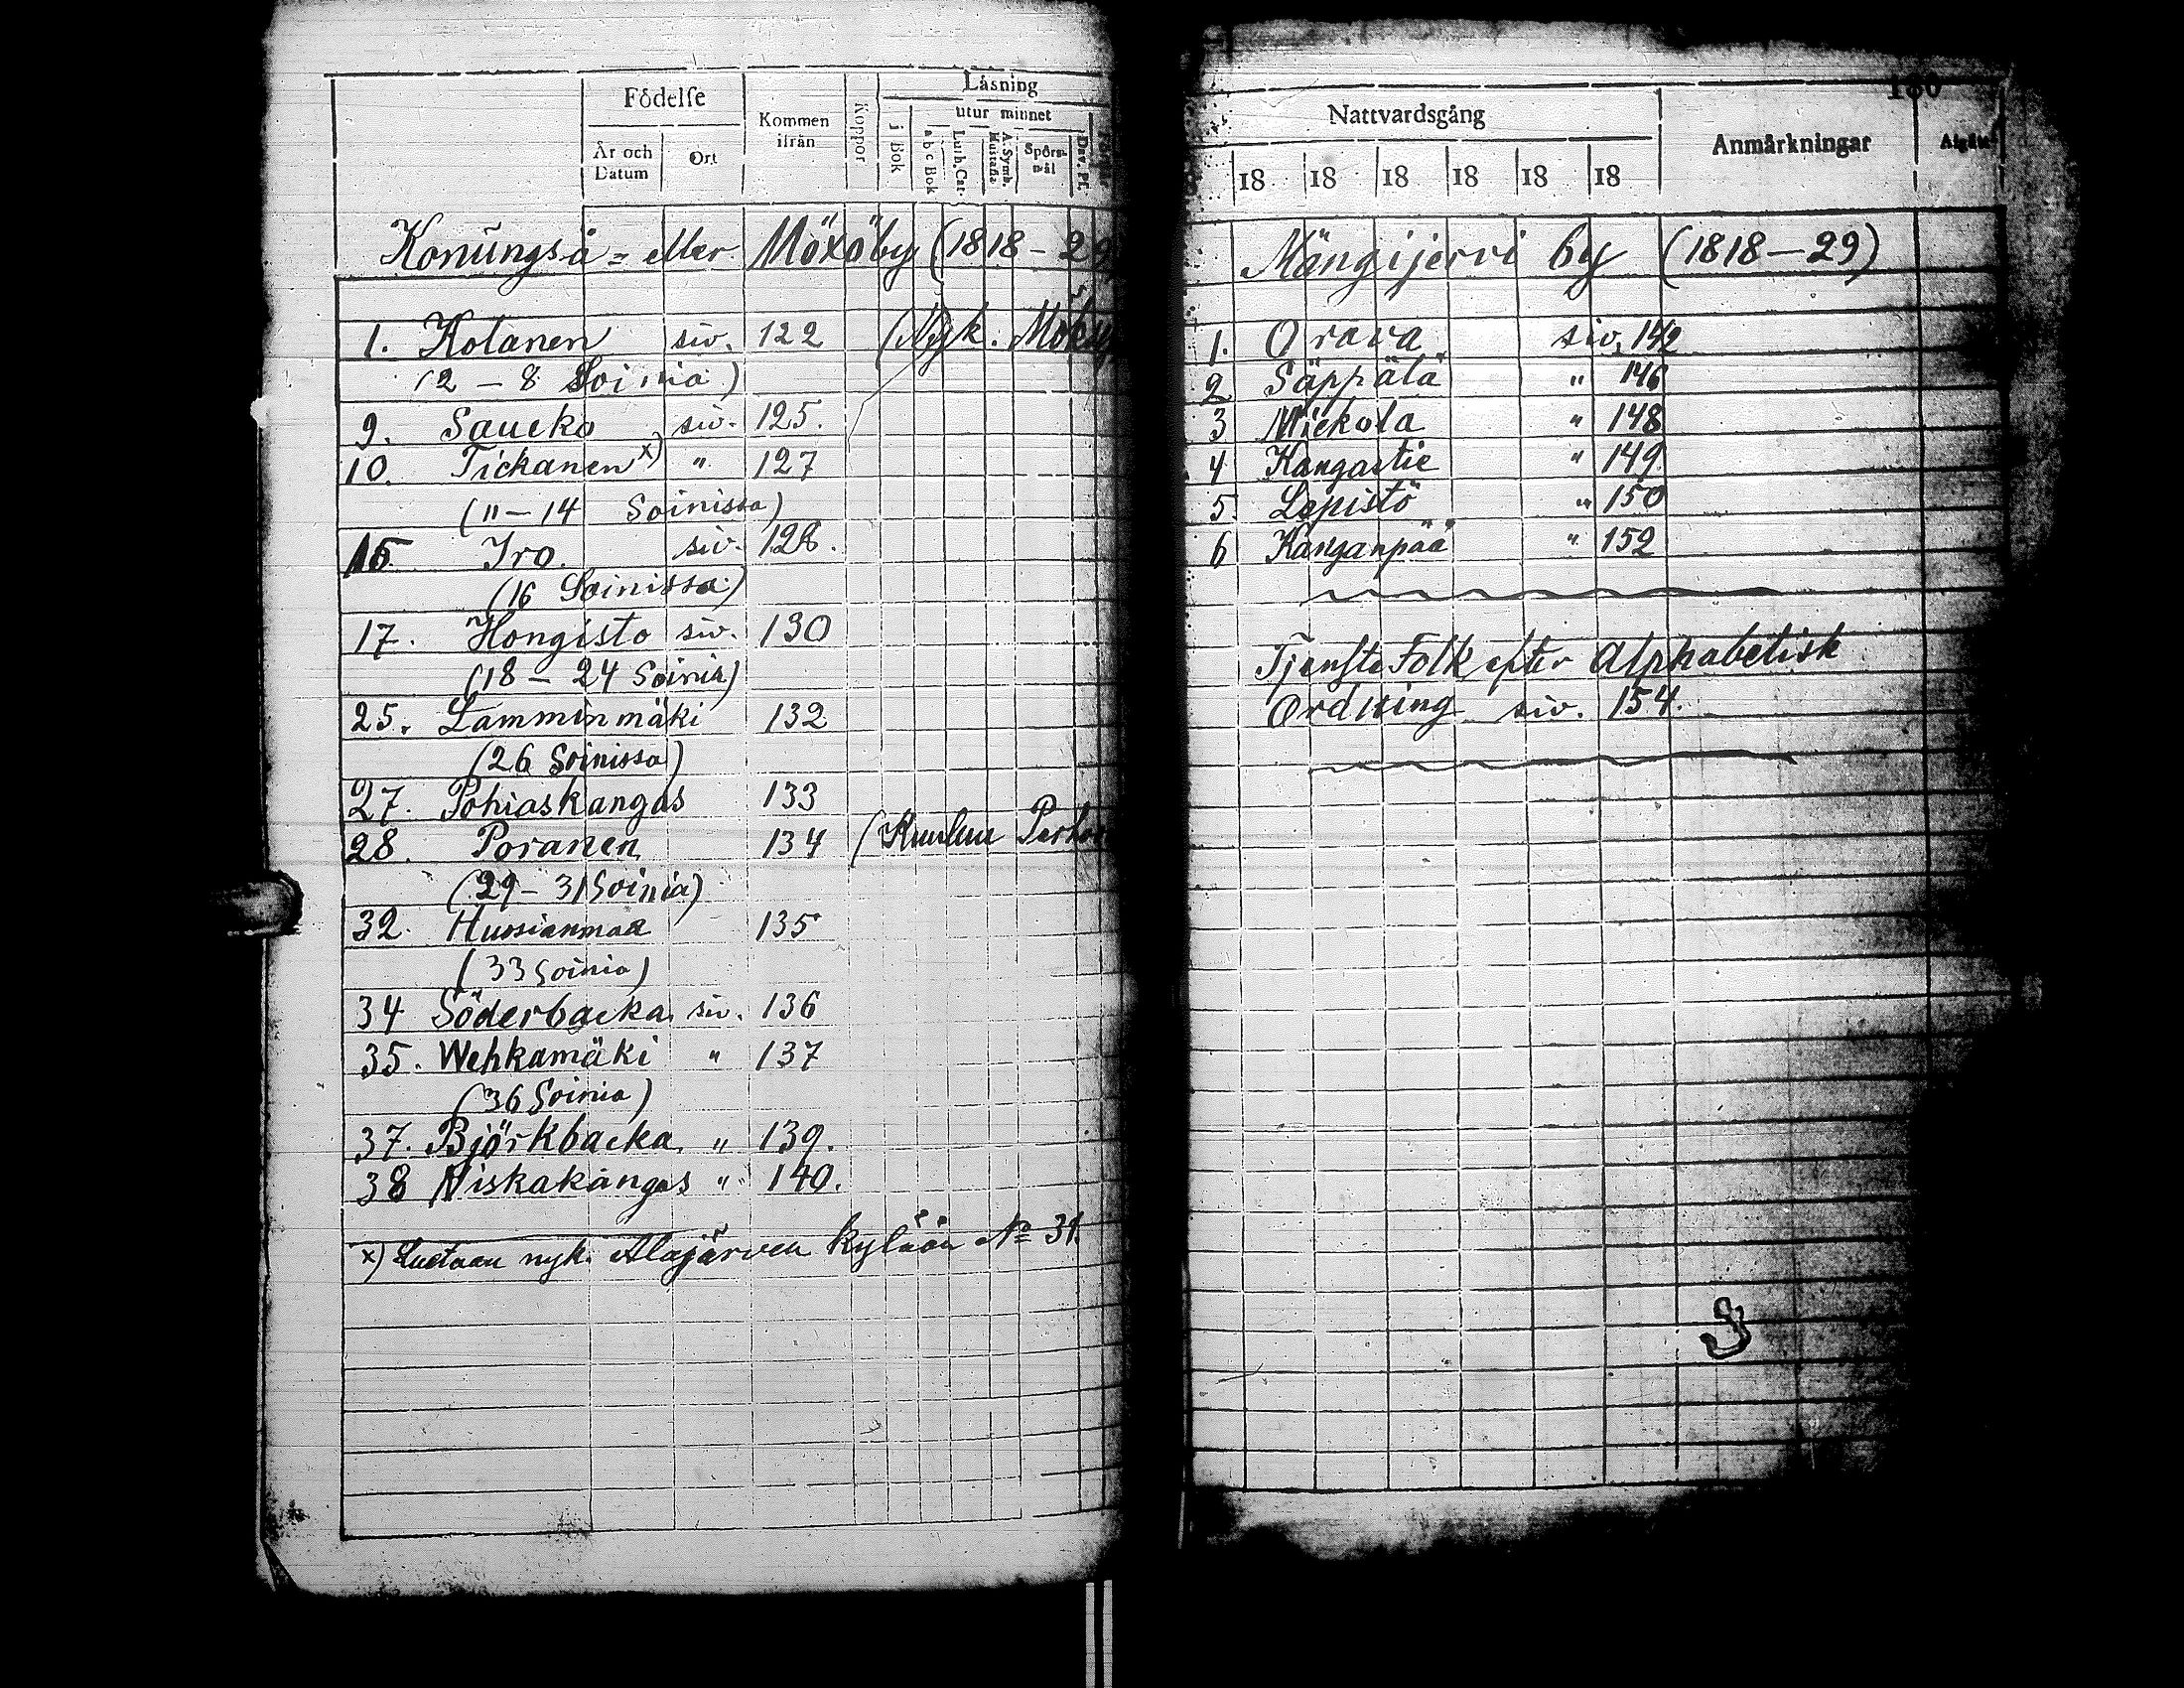 Födelse
År och Datum
Ort
Kommen ifrån
Koppor
Läsning
utur minnet
i Bok
a b c Bok
Luth. Cat.
A. Symb.
Spörsmål
Dav. Ps.
Konungså = eller Möxöby (1818 – 29
1. Kotanen siv. 122 (Nyk. Möksy
(2 – 8 Soinia)
9. Saucko siv. 125.
10. Tickanen x) " 127
(11 – 14 Soinissa)
15 Iro. siv. 128.
(16 Soinissa)
17. Hongisto siv. 130
(18 – 24 Soinia)
25. Lamminmäki 132
(26 Soinissa)
27. Pohiaskangas 133
28. Poranen 134 (Kuuluu Perhoo
(29 – 31 Soinia)
32. Huosianmaa 135
(33 Soinia)
34 Söderbacka siv. 136
35. Wehkamäki " 137
(36 Soinia)
37. Björkbacka " 139.
38 Niskakangas " 140.
x) Luetaan nyk. Alajärven kylään No 31.
180
Nattvardsgång
Anmärkningar
18 18 18 18 18 18
Mängijervi by (1818 – 29)
1. Orava siv. 142
2 Säppälä " 146
3 Mickola " 148
4 Kangastie " 149.
5. Lepistö " 150
6 Kanganpää " 152
Tjenste Folk efter Alphabetisk
Ordning siv. 154.